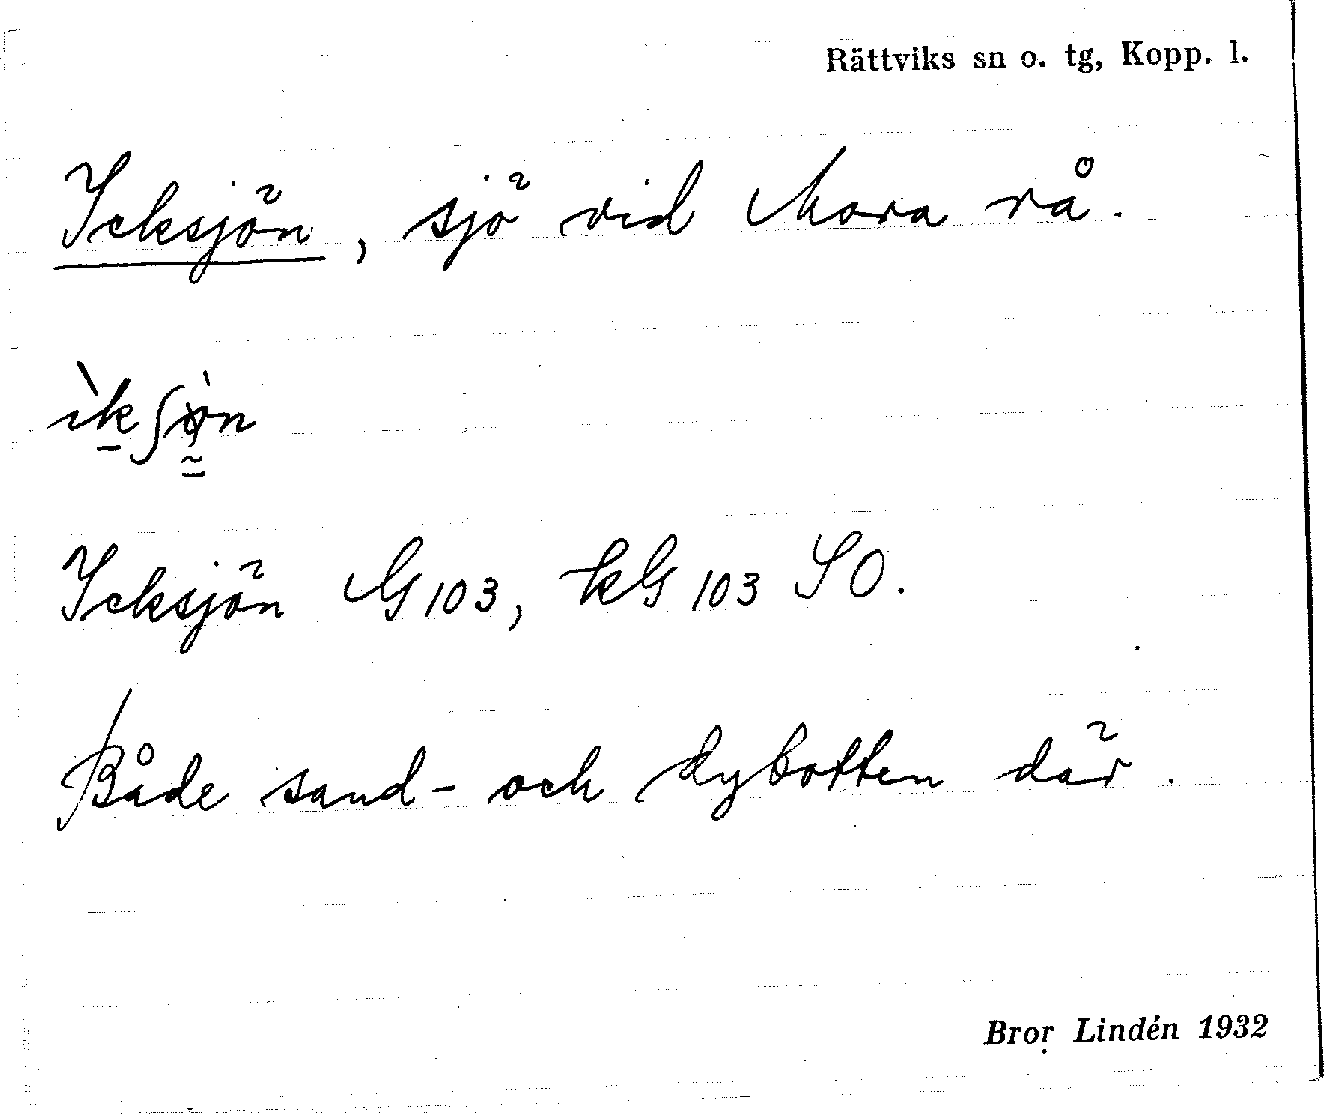 Rättviks sn o. tg, Kopp. l.
Icksjön, sjö vid Mora rå.
Icksjön G103, kG103 SO.
Både sand- och dybotten där.
Bror Lindén 1932